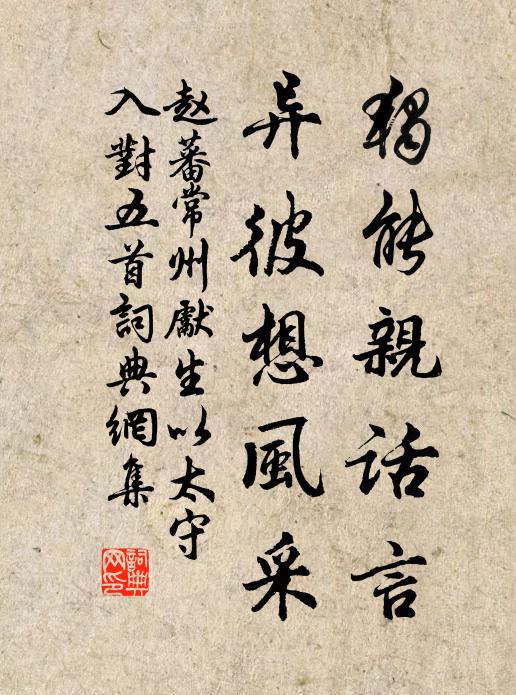 独能親话言
异彼想風采
赵蕃常州獻生以太守
入對五首詞典網集
詞典网印